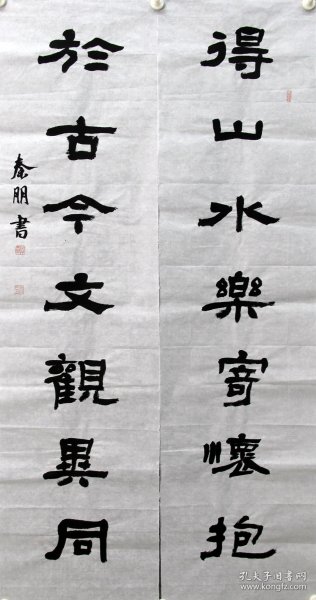 得山水樂寄懷抱
於古今文觀異同
秦朋書
孔夫子旧书网
www.kongfz.com